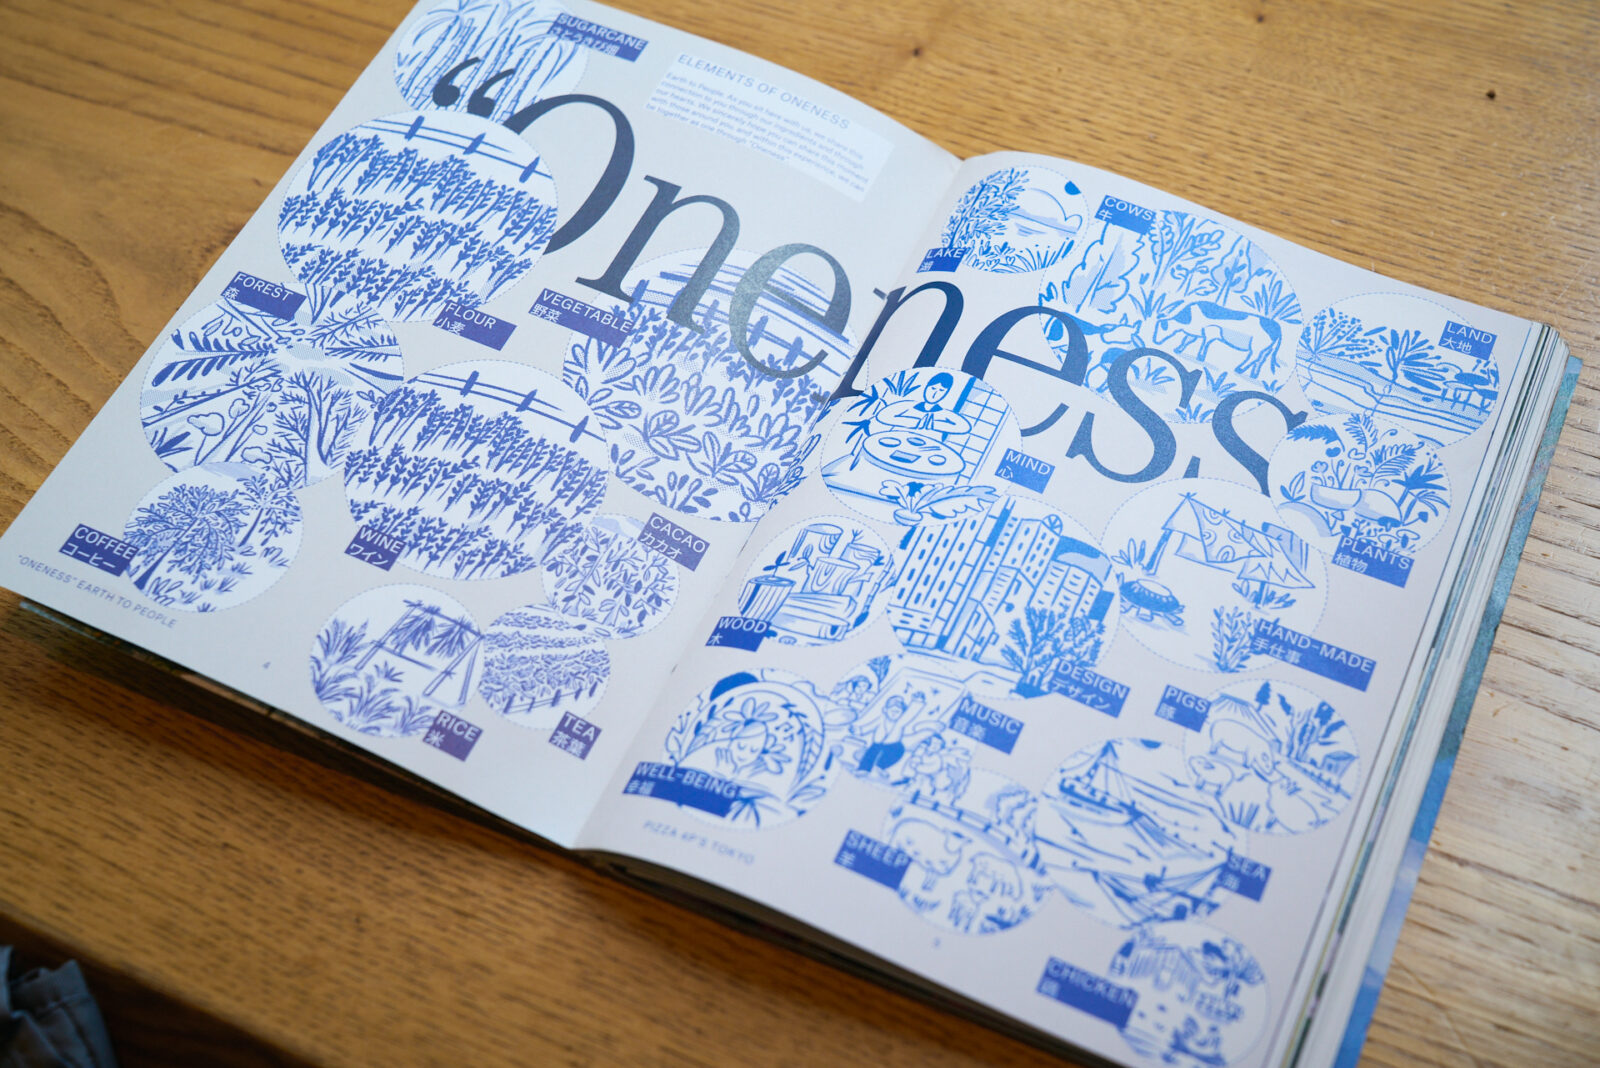 SUGARCANE
さとうきび畑
ELEMENTS OF ONENESS
Earth to People. As you sit here with us, we share this
connection to you through our ingredients and through
our hearts. We sincerely hope you can share this moment
with those around you, and within this experience, we can
be together as one through "Oneness".
“Oneness
FOREST
森
FLOUR
小麦
VEGETABLE
野菜
COFFEE
コーヒー
WINE
ワイン
CACAO
カカオ
RICE
米
TEA
茶葉
"ONENESS" EARTH TO PEOPLE
4
LAKE
湖
COWS
牛
LAND
大地
MIND
心
PLANTS
植物
WOOD
木
DESIGN
デザイン
HAND-MADE
手仕事
MUSIC
音楽
PIGS
豚
WELL-BEING
幸福
SHEEP
羊
SEA
海
CHICKEN
鶏
PIZZA 4P'S TOKYO
5